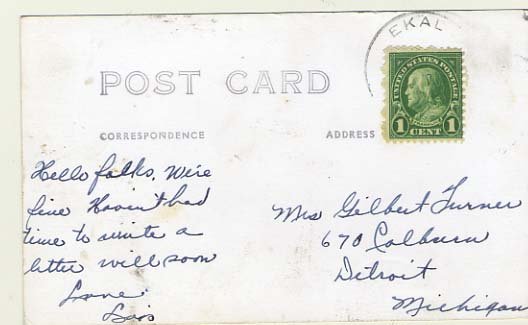 EKAL
UNITED STATES POSTAGE
FRANKLIN
1 CENT 1
POST CARD
CORRESPONDENCE
ADDRESS
Hello folks. We're
fine Haven't had
time to write a
letter will soon
Love
Lois
Mrs Gilbert Turner
670 Colburn
Detroit
Michigan